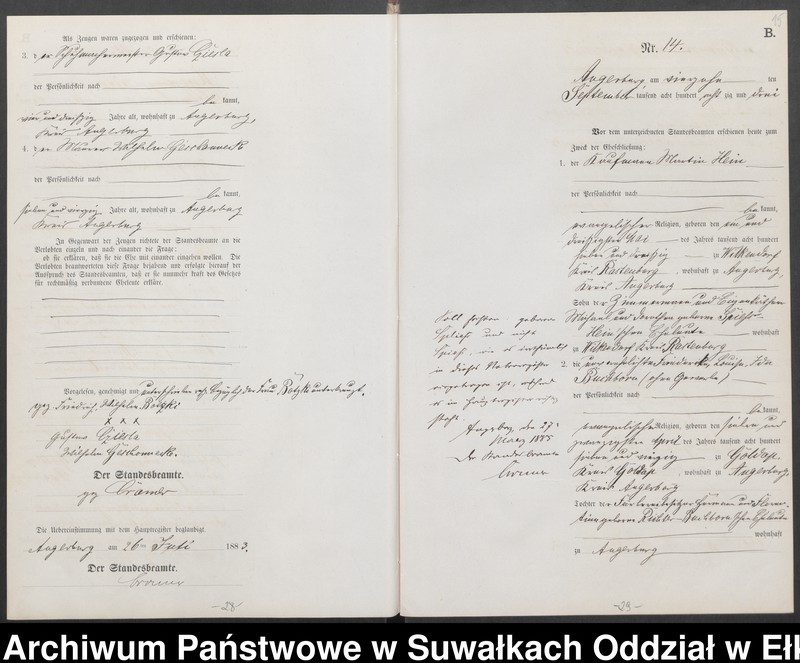 Als Zeugen waren zugezogen und erschienen:
3. der Schuhmachermeister Gustav Giesla
der Persönlichkeit nach
be kannt,
vier und dreißig Jahre alt, wohnhaft zu Angerburg,
Kreis Angerburg
4. der Maurer Wilhelm Geschonneck
der Persönlichkeit nach
be kannt,
sieben und vierzig Jahre alt, wohnhaft zu Angerburg
Kreis Angerburg
In Gegenwart der Zeugen richtete der Standesbeamte an die
Verlobten einzeln und nach einander die Frage:
ob sie erklären, daß sie die Ehe mit einander eingehen wollen. Die
Verlobten beantworteten diese Frage bejahend und erfolgte hierauf der
Ausspruch des Standesbeamten, daß er sie nunmehr kraft des Gesetzes
für rechtmäßig verbundene Eheleute erkläre.
Vorgelesen, genehmigt und
gez Friedrich Wilhelm
x x x
Gustav Giesla
Wilhelm Geschonneck.
Der Standesbeamte.
gez Cramer
Die Uebereinstimmung mit dem Hauptregister beglaubigt
Angerburg am 26ten Juli 1883.
Der Standesbeamte.
Cramer
-28-
B.
Nr. 14.
Angerburg, am vierzehn ten
September tausend acht hundert acht zig und drei
Vor dem unterzeichneten Standesbeamten erschienen heute zum
Zweck der Eheschließung:
1. der Kaufmann Martin Hein
der Persönlichkeit nach
be kannt,
evangelischer Religion, geboren den ein und
dreißigsten Mai des Jahres tausend acht hundert
sieben und dreißig zu Wilkendorf
Kreis Rastenburg, wohnhaft zu Angerburg
Kreis Angerburg
Sohn der Zimmermann und Eigenkäthner
Michael und Dorothea geborene
Heinschen Eheleute wohnhaft
zu Wilkendorf Kreis Rastenburg
2. die Louise, Ida
Buchhorn (ohne Gewerbe)
der Persönlichkeit nach
be kannt,
evangelischer Religion, geboren den sieben und
zwanzigsten April des Jahres tausend acht hundert
sieben und vierzig zu Goldap
Kreis Goldap, wohnhaft zu Angerburg,
Kreis Angerburg
Tochter der Färbereibesitzer Herman und
geborene Richter Buchhornschen Eheleute
wohnhaft
zu Angerburg
Soll heißen: geborene
und nicht
in dieses Nebenregister
eingetragen ist, während
es im Hauptregister richtig
steht.
Angerburg, den 27.
März 1885
Der Standesbeamte
Cramer
-29-
Archiwum Państwowe w Suwałkach Oddział w Ełk